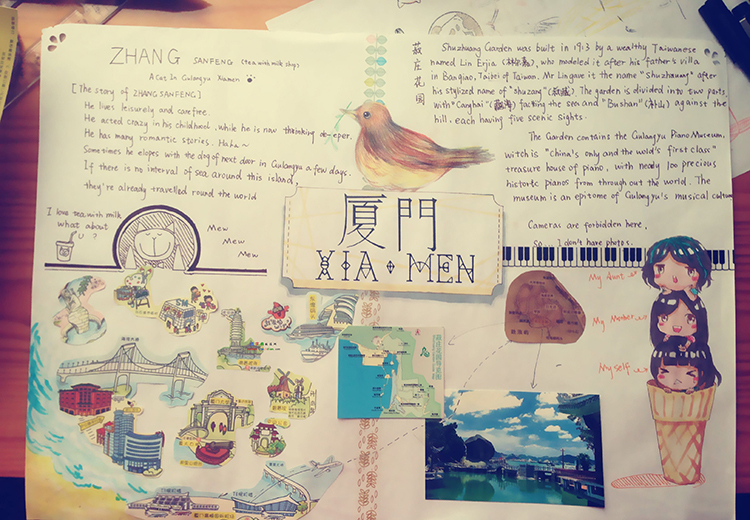 ZHANG SANFENG (tea with milk shop)
A Cat In Gulangyu Xiamen
[The story of ZHANG SANFENG]
He lives leisurely and carefree.
He acted crazy in his childhood, while he is now thinking deeper.
He has many romantic stories. Haha~
Sometimes he elopes with the dog of next door in Gulangyu a few days.
If there is no interval of sea around this island,
they're already travelled round the world
I love tea with milk
what about
U ?
Mew
Mew
Mew
厦門
XIA·MEN
菽庄花园
Shuzhuang Garden was built in 1913 by a wealthy Taiwanese
named Lin Erjia (林尔嘉), who modeled it after his father's villa
in Banqiao, Taibei of Taiwan. Mr Lin gave it the name "Shuzhuang" after
his stylized name of "shuzang" (叔臧). The garden is divided into two parts
with "Canghai" (藏海) facing the sea and "Bushan" (补山) against the
hill, each having five scenic sights.
The Garden contains the Gulangyu Piano Museum,
witch is "China's only and the wold's first class"
treasure house of piano, with nearly 100 precious
historic pianos from through out the world. The
museum is an epitome of Gulangyu's musical culture
Cameras are forbidden here,
So I don't have photos.
My Aunt
My Mother
Myself